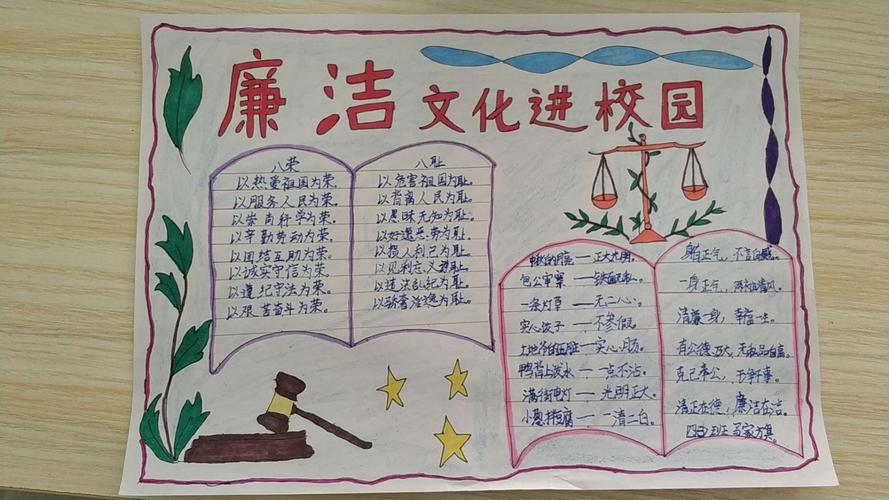 廉洁文化进校园
八荣
以热爱祖国为荣。
以服务人民为荣。
以崇尚科学为荣。
以辛勤劳动为荣。
以团结互助为荣。
以诚实守信为荣。
以遵纪守法为荣。
以艰苦奋斗为荣。
八耻
以危害祖国为耻。
以背离人民为耻。
以愚昧无知为耻。
以好逸恶劳为耻。
以损人利己为耻。
以见利忘义为耻。
以违法乱纪为耻。
以骄奢淫逸为耻。
正大光明。
包公审案——铁面无私。
一条灯草——无二心。
实心饺子——不参假。
土地爷的五脏——实心
鸭背上泼水——一点不沾。
满街电灯——光明正大
小葱拌豆腐——一清二白。
身有正气，不言自威。
一身正气，两袖清风。
清廉一身，幸福一生。
有公德乃大，无私品自高。
克己奉公，干净干事。
清正在德，廉洁在洁。
班